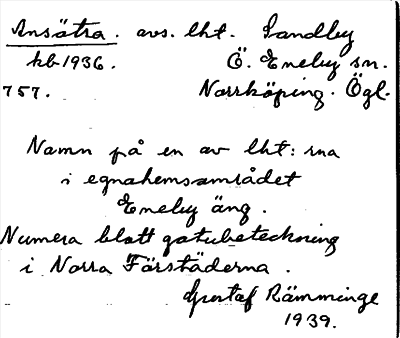 Ansätra. avs. lht. Sandby
kb 1936. Ö. Eneby sn.
757. Norrköping. Ögl.
Namn på en av lht:rna
i egnahemsområdet
Eneby äng.
Numera blott gatubeteckning
i Norra Förstäderna.
Gustaf Rämminge
1939.